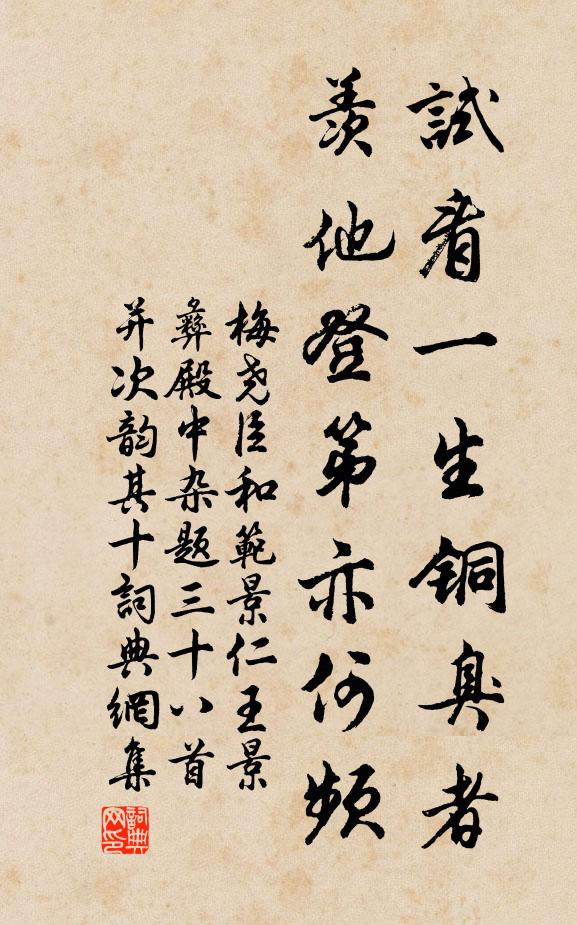 試看一生铜臭者
羨他登第亦何頻
梅尧臣和範景仁王景
彝殿中杂題三十八首
并次韵其十詞典網集
詞典网印